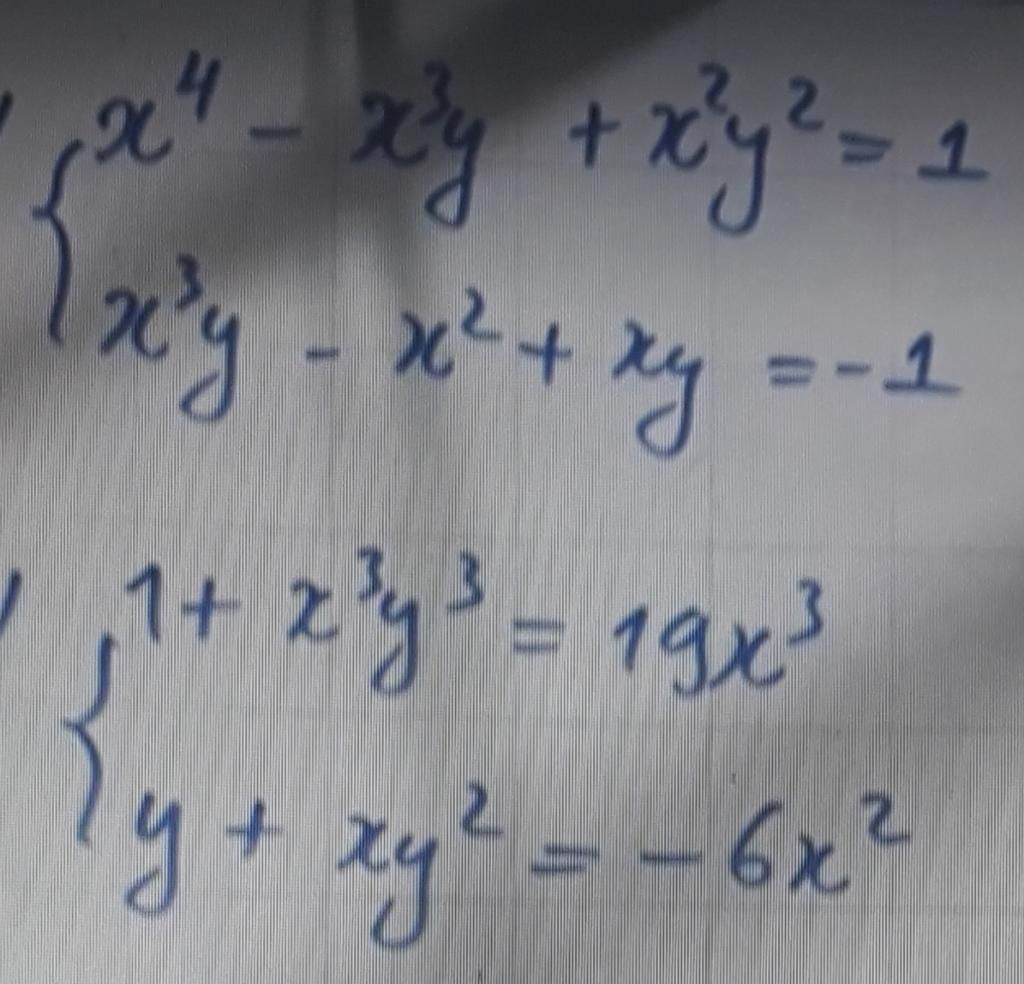 x⁴ - x³y + x²y² = 1
x³y - x² + xy = -1
1 + x³y³ = 19x³
y + xy² = -6x²